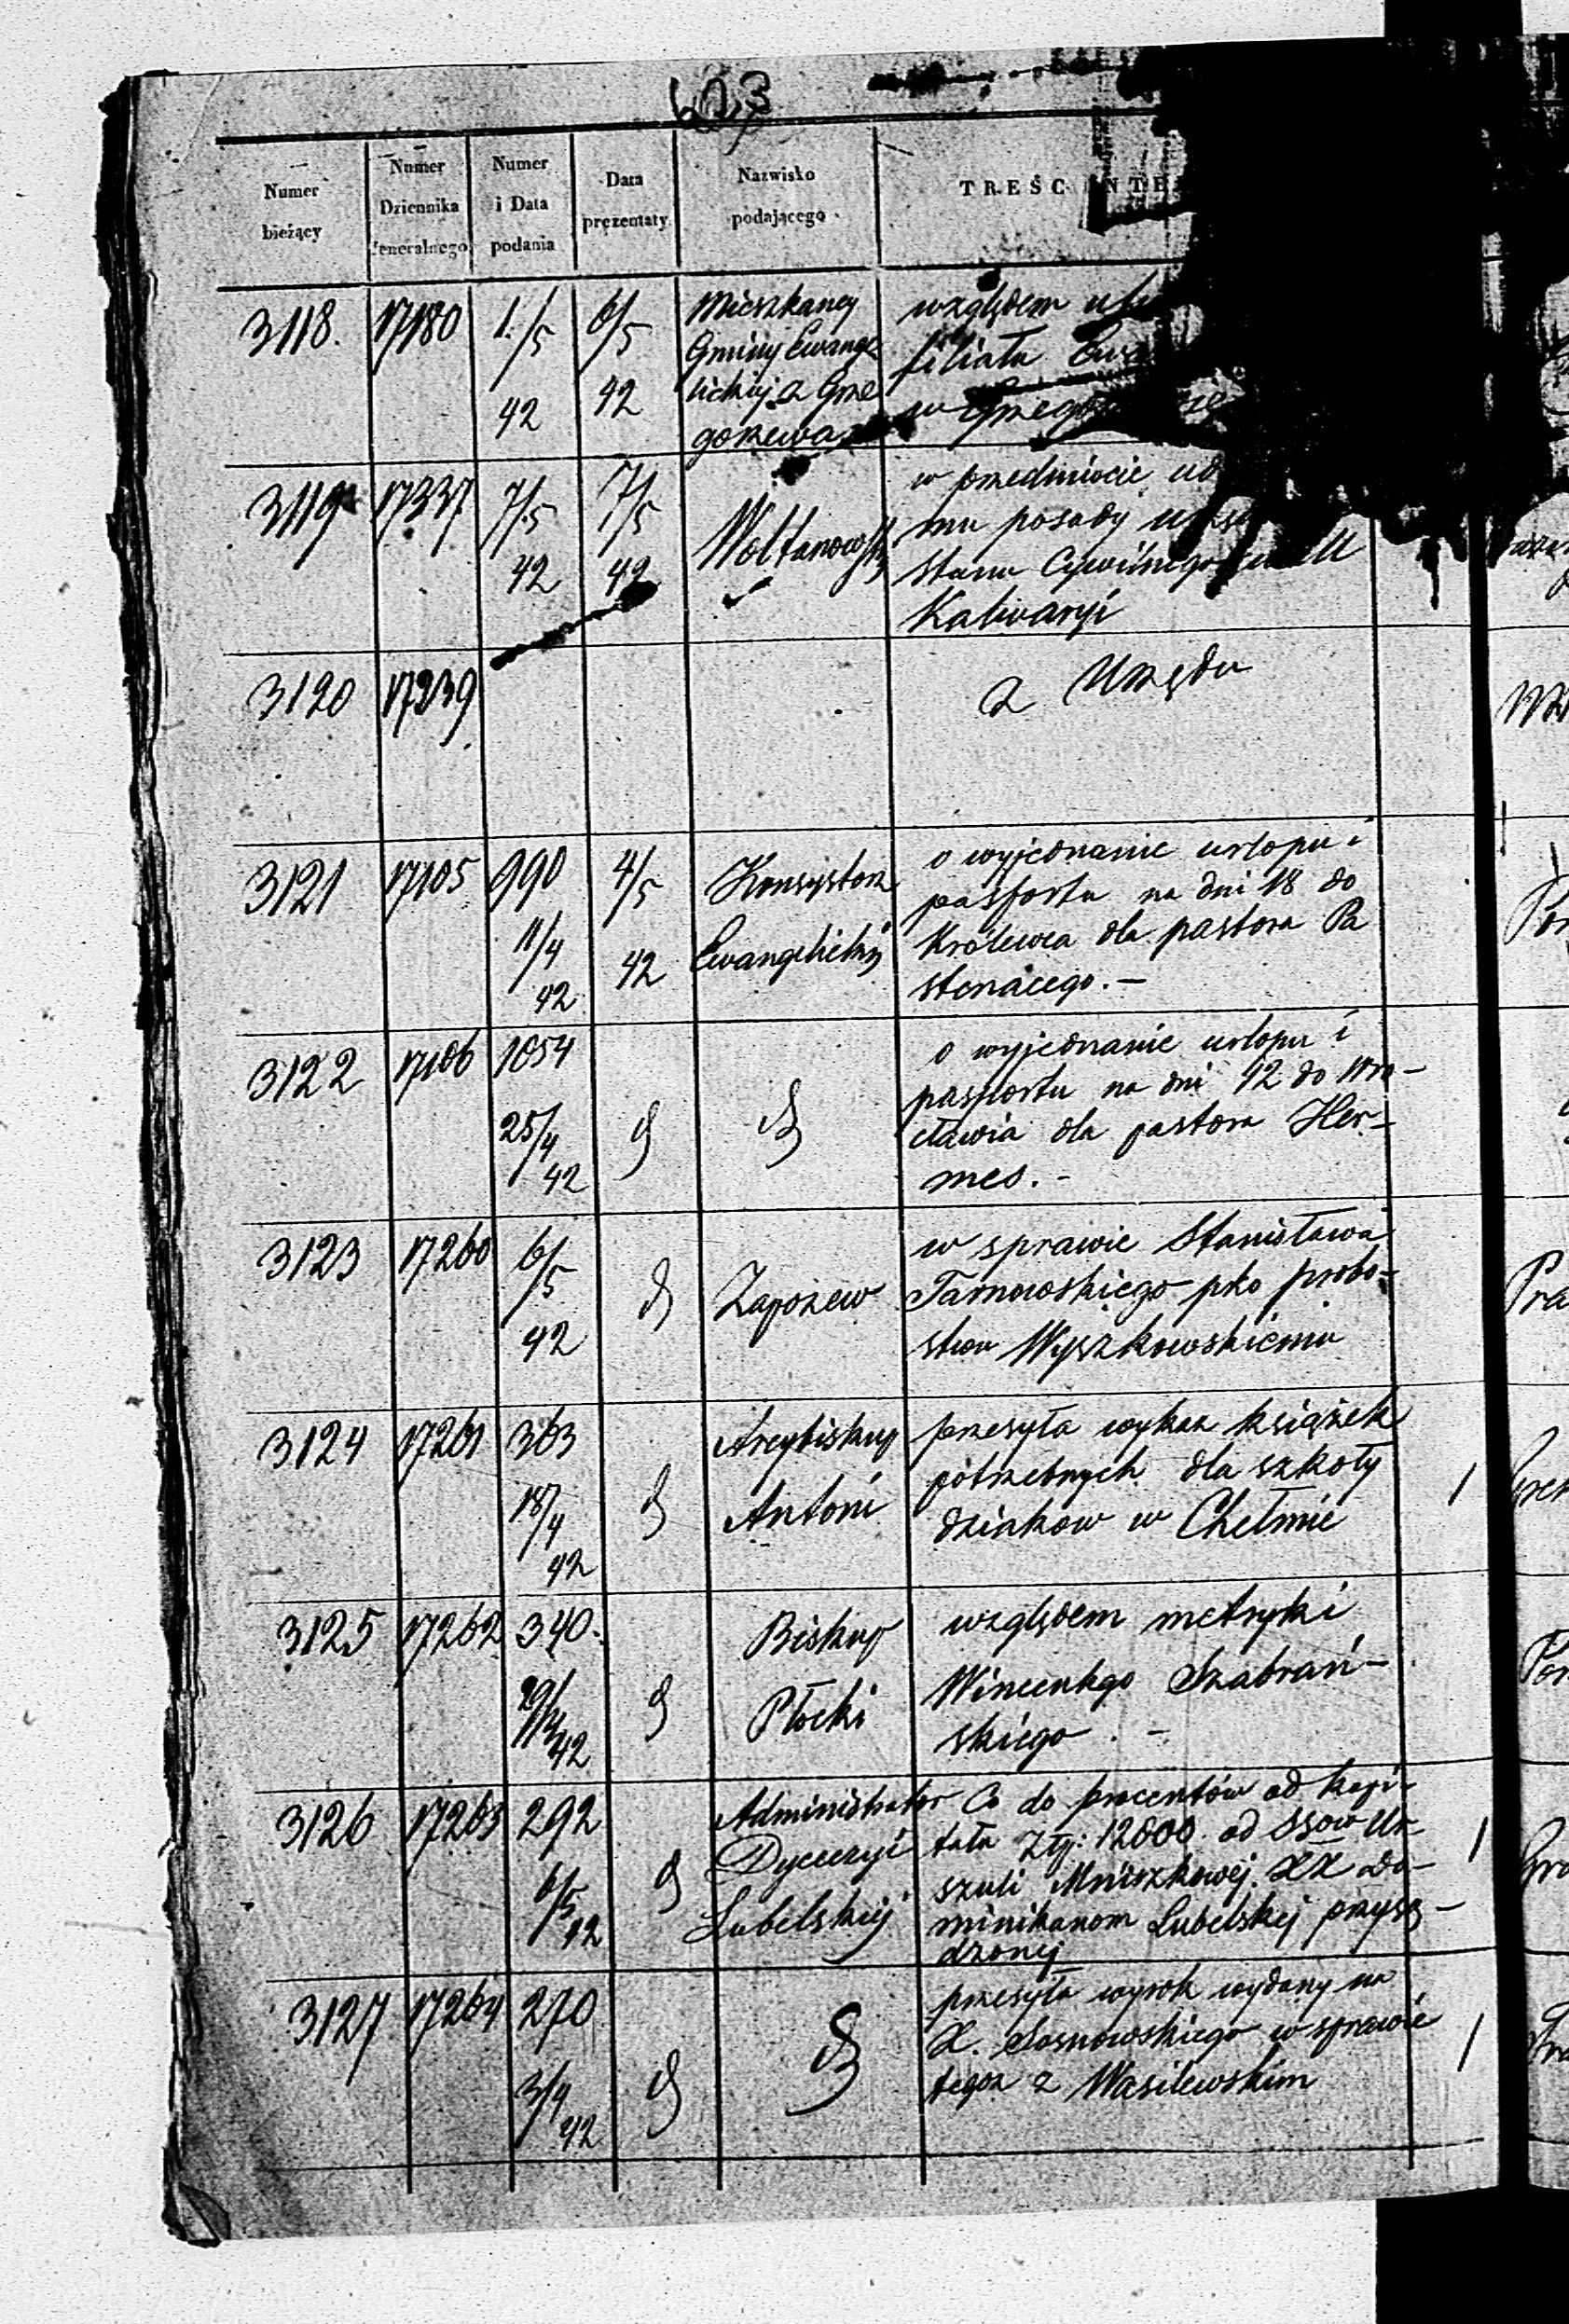 Numer bieżący
Numer Dziennika Generalnego
Numer i Data podania
Data prezentaty
Nazwisko podającego
TREŚĆ INTE
3118. 17180 1./5 42 6/5 42
Mieszkancy
Gminy Ewange
lickiej z Grze
gorzewa
względem
filiału Ewa
w Grzego
3119 17337 7/5 42 7/5 42
Woltanowski
w przedmiocie
mu posady
Stanu Cywilnego
Kalwaryi
3120 17239
z Urzędu
3121 17105 990 11/4 42 4/5 42
Konsystorz
Ewangelicki
o wyjednanie urlopu i
pasportu na dni 18 do
Królewca dla pastora Pa
stenacego. —
3122 17106 1054 25/4 42
o wyjednanie urlopu i
pasportu na dni 42 do Wro-
cławia dla pastora Her-
mes. -
3123 17260 6/5 42
Zaporzew
w sprawie Stanisława
Tarnowskiego pko probo-
stwu Wyszkowskiemu
3124 17261 363 18/4 42
Arcybiskup
Antoni
przesyła wykaz książek
potrzebnych dla szkoły
dziaków w Chełmie
3125 17262 340. 29/4 42
Biskup
Płocki
względem metryki
Wincentego Szabrań-
skiego. -
3126 17263 292 6/5 42
Administrator
Dyecezyi
Lubelskiej
Co do procentów od kapi-
tału Złp: 12000 od SSów Ur-
szuli Mniszkowej. XX Do-
minikanom Lubelskiej przysą-
dzonej
3127 17264 270 3/4 42
przesyła wyrok wydany na
X. Sosnowskiego w sprawie
tegoż z Wasilewskim